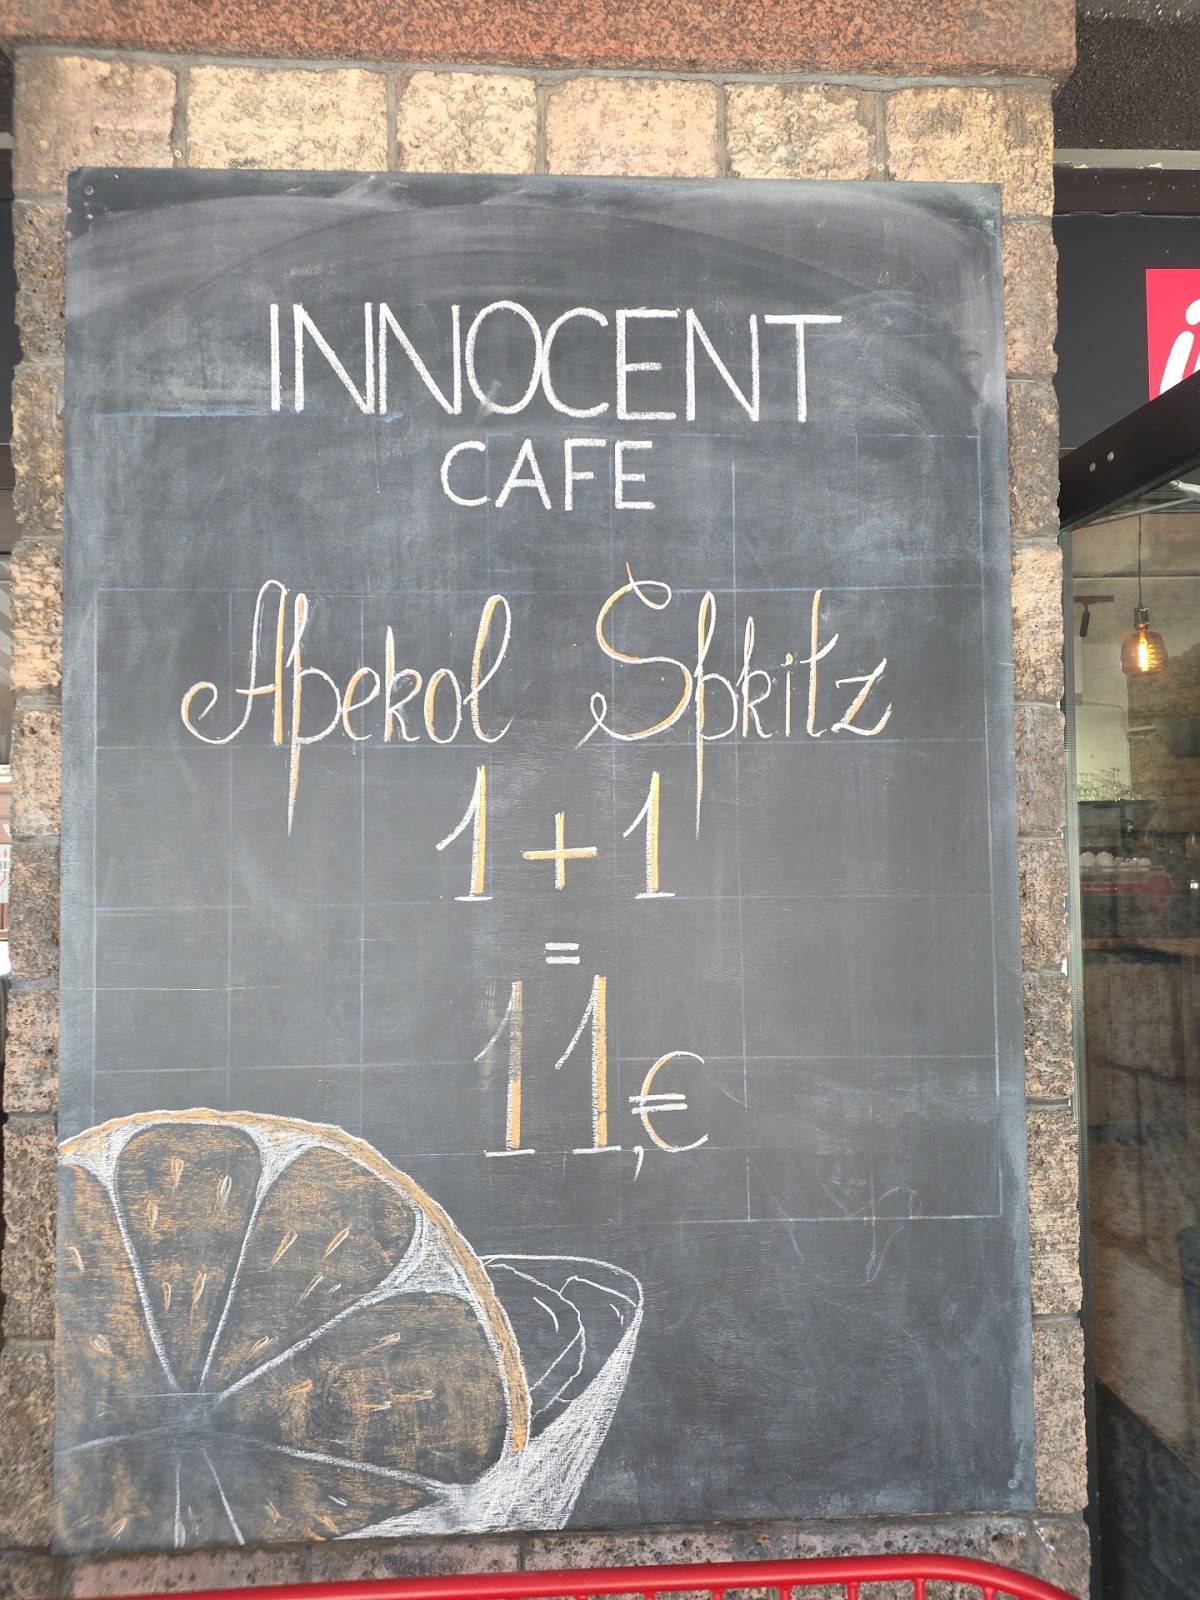 INNOCENT
CAFE
Aperol Spritz
1 + 1
=
11,€